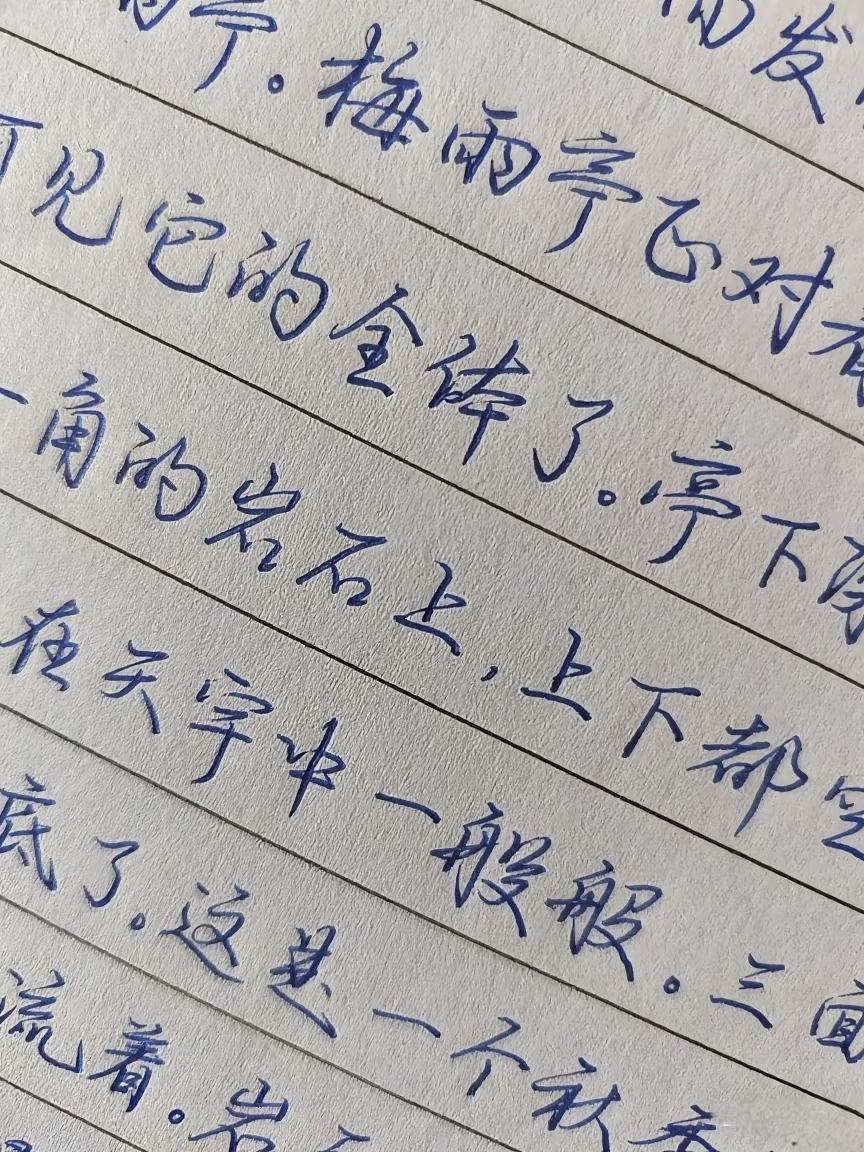 发
亭。梅雨亭正对着
可见它的全体了。亭下深
一角的岩石上,上下都空
在天宇中一般般。三面
底了。这是一个秋季
流着。岩